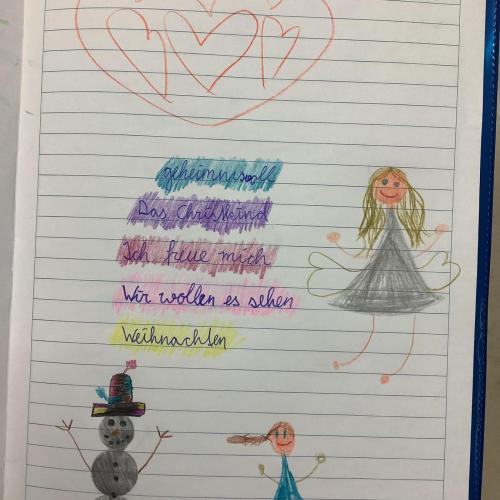 geheimnisvoll
Das Christkind
Ich freue mich
Wir wollen es sehen
Weihnachten